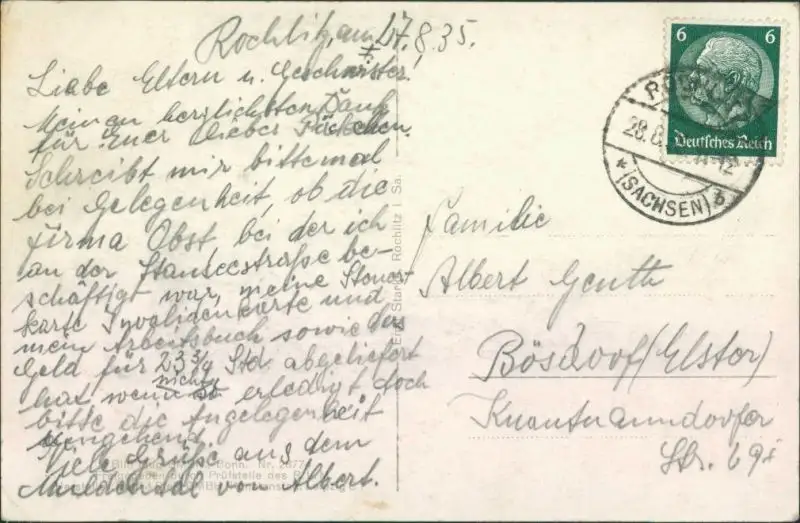 Rochlitz, am 27.8.35.
Liebe Eltern u. Geschwister!
Meinen herzlichsten Dank
für Euer lieber Päckchen.
Schreibt mir bitte mal
bei Gelegenheit, ob die
Firma Obst, bei der ich
an der Stauseestraße be-
schäftigt war, meine Steuer-
karte Invalidenkarte und
mein Arbeitsbuch sowie das
Geld für 23 3/4 Std. abgeliefert
hat wenn nicht erledigt doch
bitte die Angelegenheit
umgehend.
Viele Grüße aus dem
Muldental von Albert.
6 6
Deutsches Reich
28.8.
(SACHSEN)
Familie
Albert Genth
Bösdorf (Elster)
Knautnaundorfer
Str. 69
Rochlitz i. Sa.
Bonn. Nr.